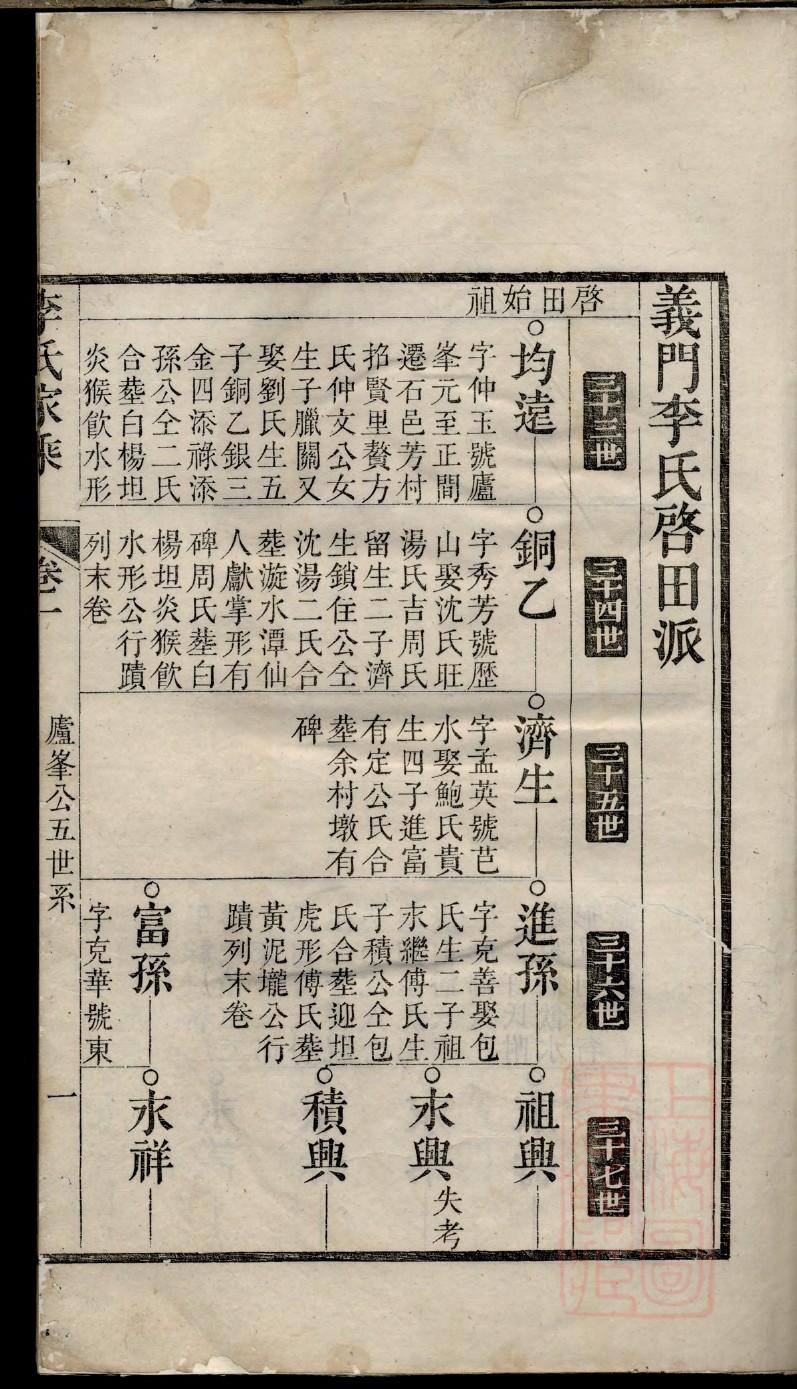 義門李氏啓田派
三十三世
三十四世
三十五世
三十六世
三十七世
啓田始祖
均遠
字仲玉號廬
峯元至正間
遷石邑芳村
招賢里贅方
氏仲文公女
生子臘關又
娶劉氏生五
子銅乙銀三
金四添祿添
孫公仝二氏
合塟白楊坦
炎猴飮水形
銅乙
字秀芳號歷
山娶沈氏旺
湯氏吉周氏
留生二子濟
生鎖住公仝
沈湯二氏合
塟漩水潭仙
人獻掌形有
碑周氏塟白
楊坦炎猴飮
水形公行蹟
列末卷
濟生
字孟英號芭
水娶鮑氏貴
生四子進富
有定公氏合
塟余村墩有
碑
進孫
字克善娶包
氏生二子祖
永繼傅氏生
子積公仝包
氏合塟迎坦
虎形傅氏塟
黃泥壠公行
蹟列末卷
富孫
字克華號東
祖興
永興
失考
積興
永祥
李氏家乘
卷一
廬峯公五世系
一
上海圖